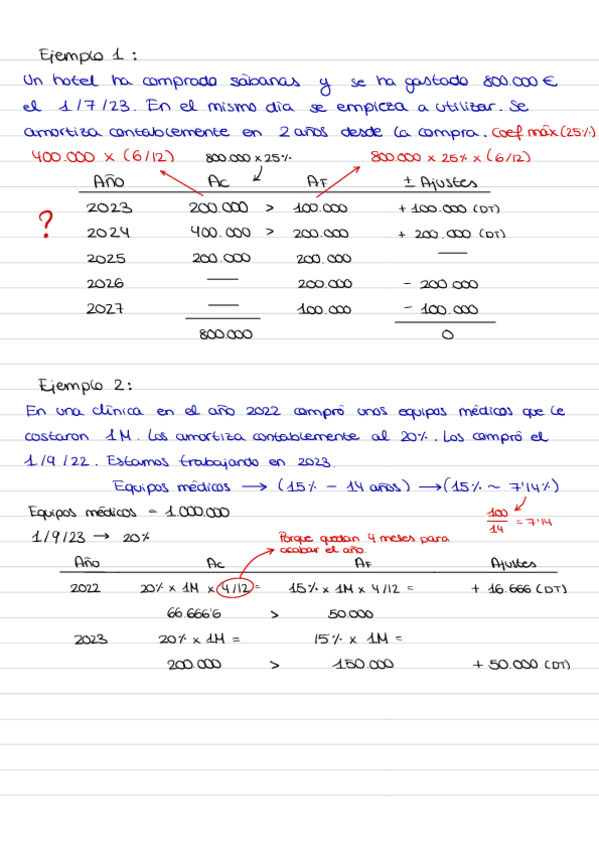 Ejemplo 1 :
Un hotel ha comprado sábanas y se ha gastado 800.000 €
el 1/7/23. En el mismo día se empieza a utilizar. Se
amortiza contablemente en 2 años desde la compra. Coef máx (25%)
400.000 x (6/12) 800.000 x 25% 800.000 x 25% x (6/12)
Año Ac AF ± Ajustes
? 2023 200.000 > 100.000 + 100.000 (DT)
2024 400.000 > 200.000 + 200.000 (DT)
2025 200.000 200.000 —
2026 — 200.000 - 200.000
2027 — 100.000 - 100.000
800.000 0
Ejemplo 2:
En una clínica en el año 2022 compró unos equipos médicos que le
costaron 1M. Los amortiza contablemente al 20%. Los compró el
1/9/22. Estamos trabajando en 2023.
Equipos médicos → (15% - 14 años) → (15% ~ 7'14%)
Equipos médicos = 1.000.000 100/14 = 7'14
1/9/23 → 20% Porque quedan 4 meses para
acabar el año.
Año Ac AF Ajustes
2022 20% x 1M x 4/12 = 15% x 1M x 4/12 = + 16.666 (DT)
66.666'6 > 50.000
2023 20% x 1M = 15% x 1M =
200.000 > 150.000 + 50.000 (DT)